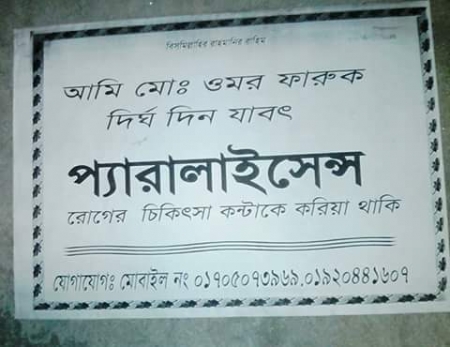 বিসমিল্লাহির রাহমানির রাহিম
আমি মোঃ ওমর ফারুক
দির্ঘ দিন যাবৎ
প্যারালাইসেন্স
রোগের চিকিৎসা কন্টাকে করিয়া থাকি
যোগাযোগঃ মোবাইল নং ০১৭০৫০৭৩৯৬৯.০১৯২০৪৪১৬০৭